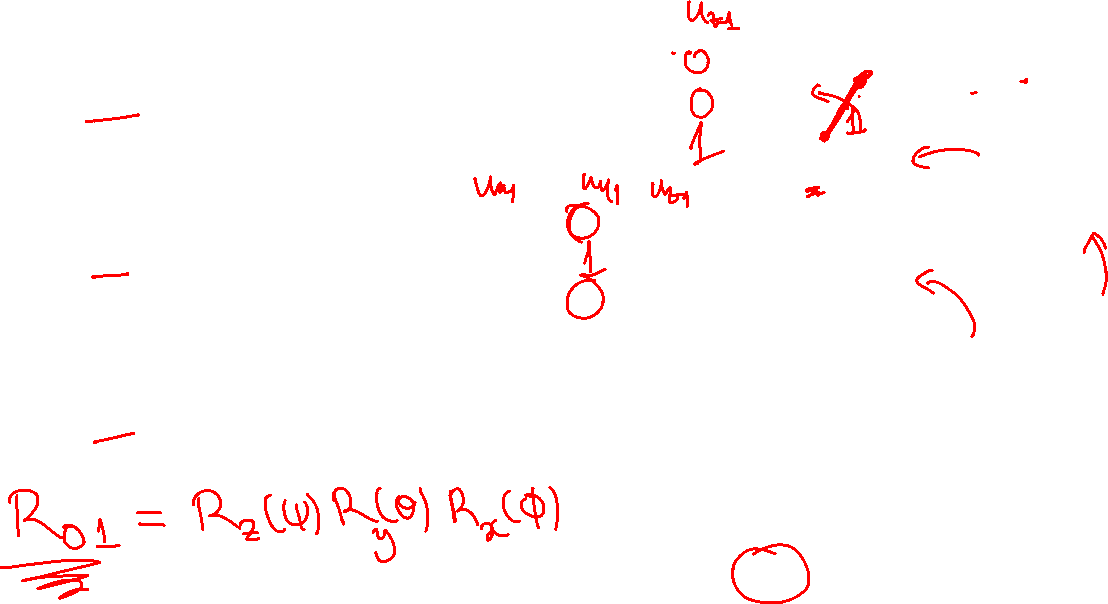 u_z1
0
0
1
u_x1 u_y1 u_z1
0
1
0
R_01 = R_z(ψ) R_y(θ) R_x(ϕ)